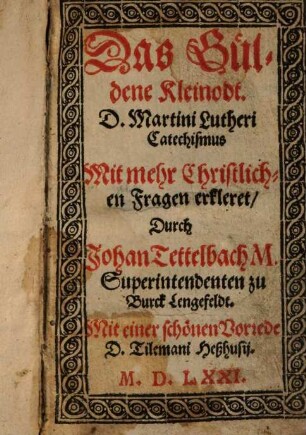 Das Gül-
dene Kleinodt.
D. Martini Lutheri
Catechismus
Mit mehr Christlich-
en Fragen erkleret/
Durch
Johan Tettelbach M.
Superintendenten zu
Burck Lengefeldt.
Mit einer schönen Vorrede
D. Tilemani Heßhusij.
M. D. LXXI.